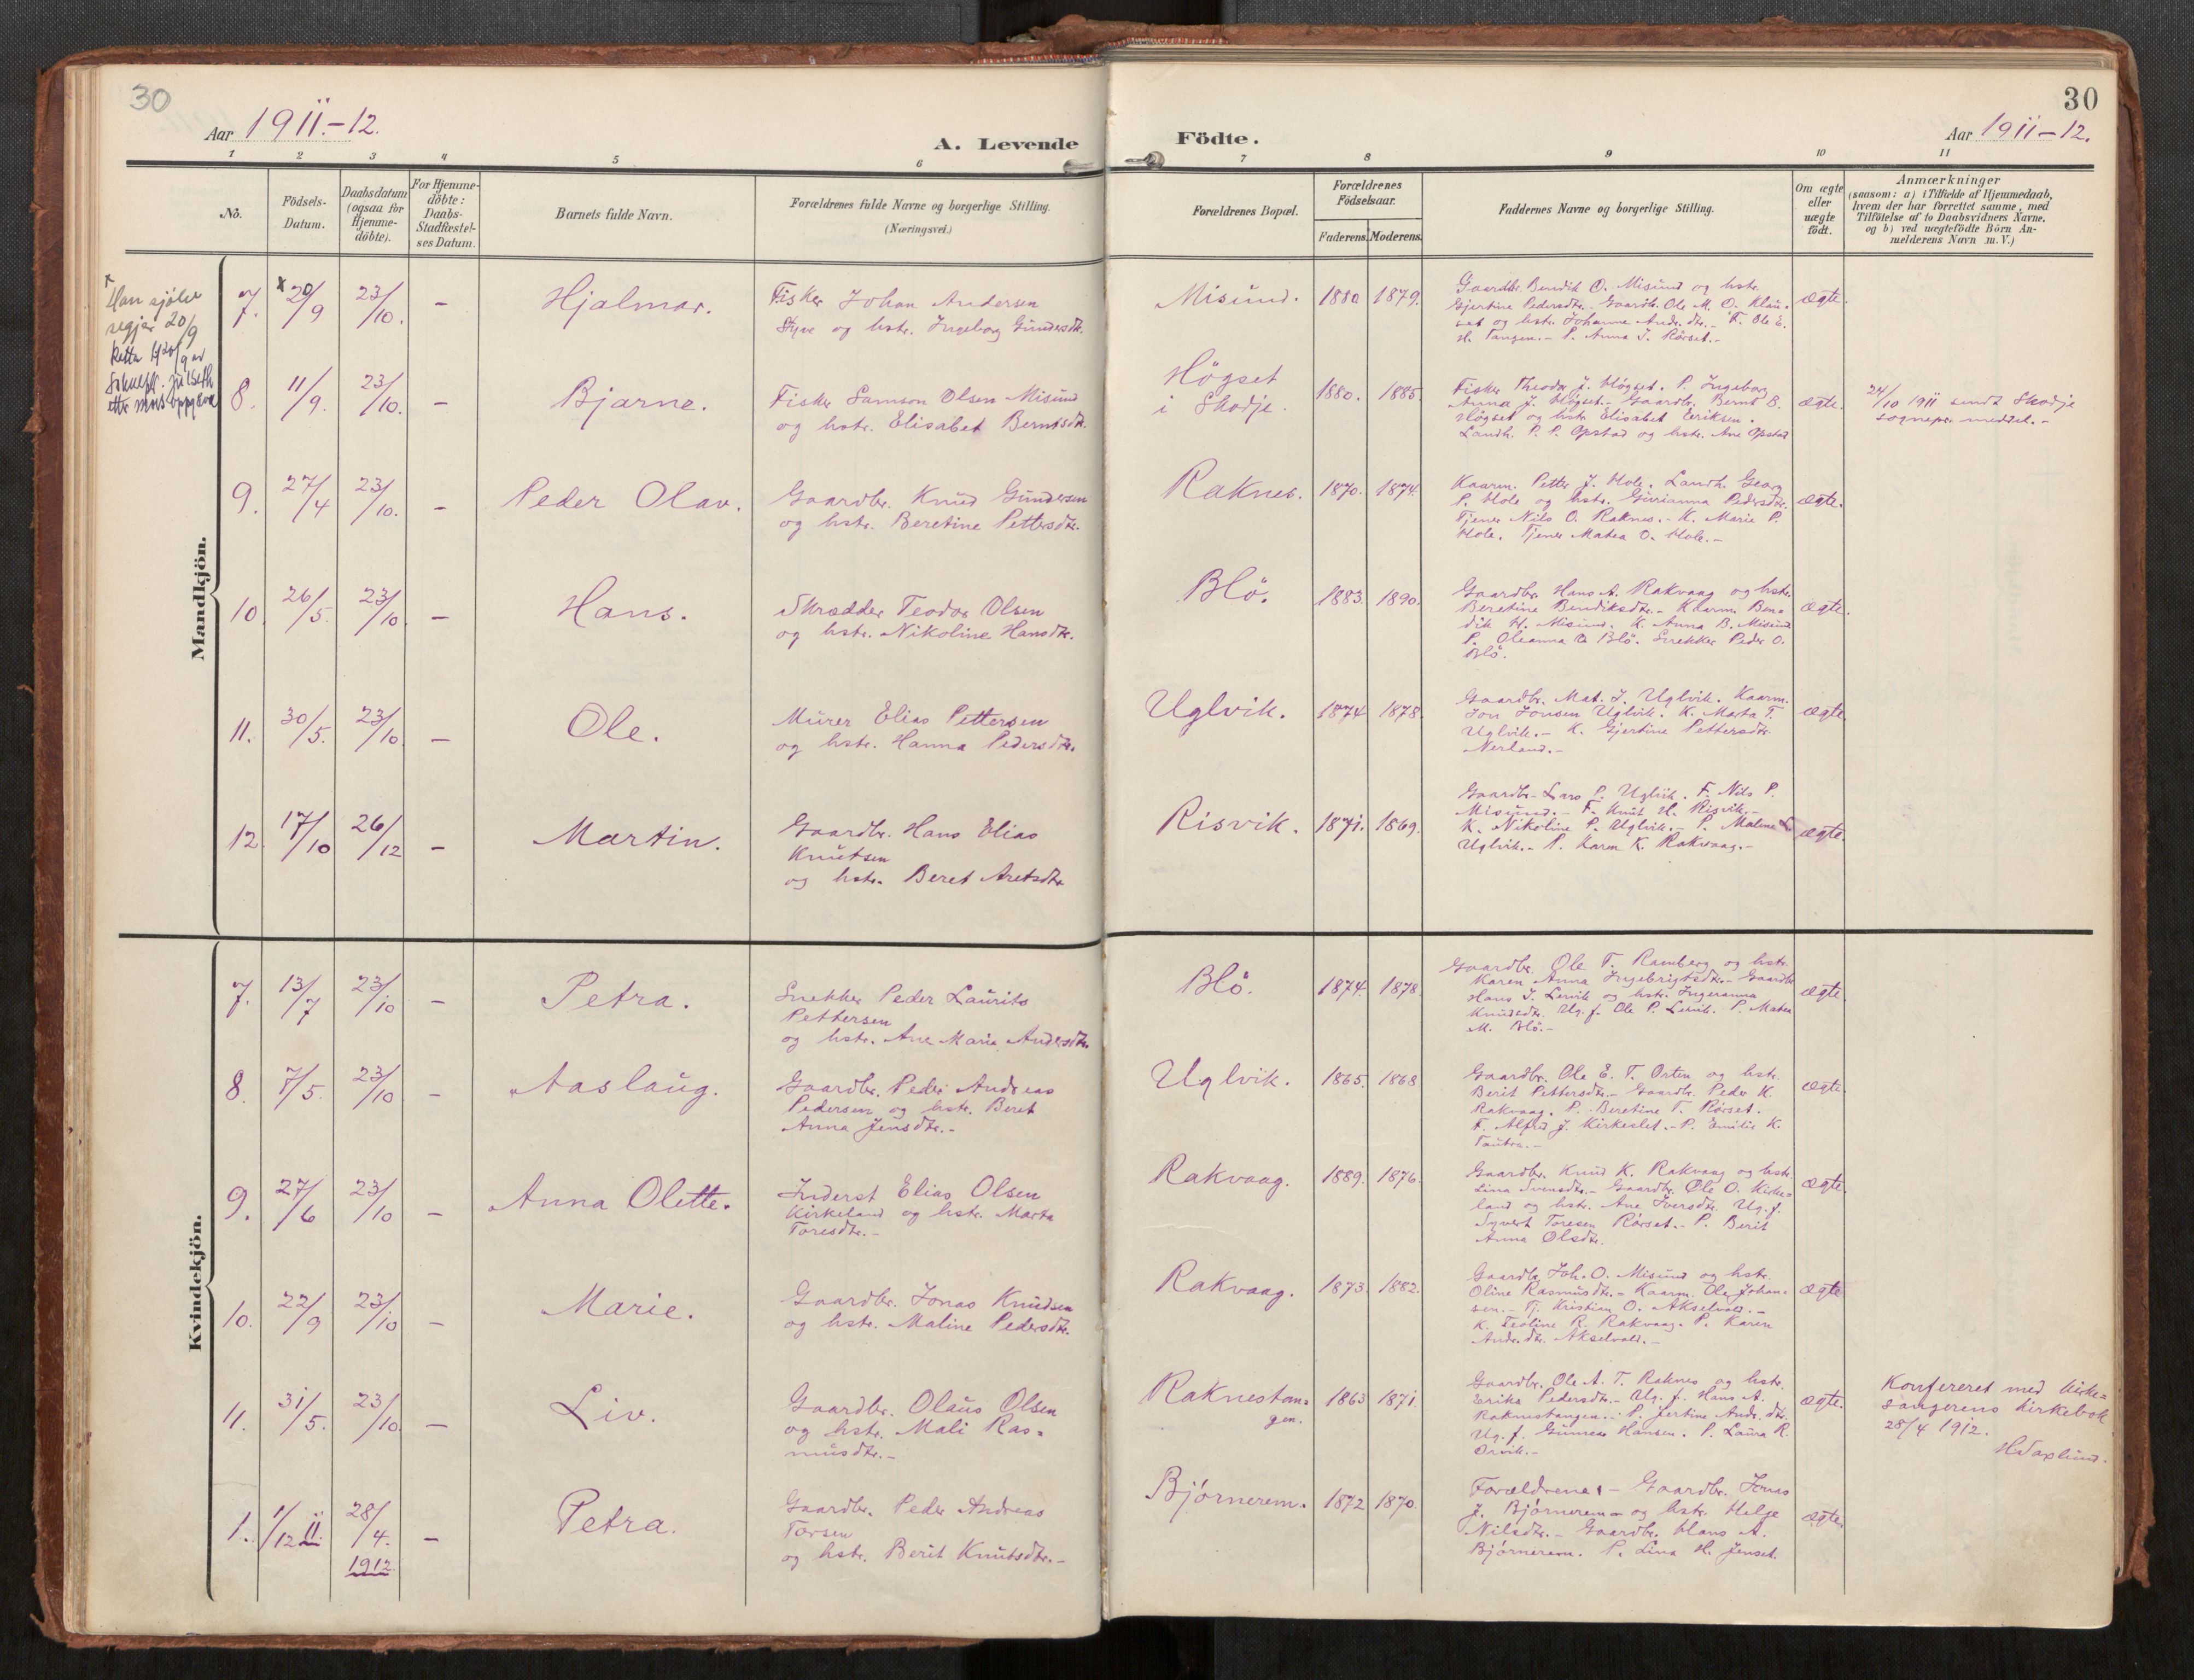 30
Aar 1911.-12.
A. Levende
1 2 3 4 5 6
No.
Födsels-
Datum.
Daabsdatum
(ogsaa for
Hjemme-
döbte).
For Hjemme-
döbte:
Daabs-
Stadfæstel-
ses Datum.
Barnets fulde Navn.
Forældrenes fulde Navne og borgerlige Stilling.
(Næringsvei.)
x
Han sjölv
segjer 20/9
Retta
etter
Mandkjön.
7. x 20/9 23/10. - Hjalmar.
Fisker Johan Andersen
Styve og hstr. Ingeborg Gundersdtr.
8. 11/9. 23/10. - Bjarne.
Fisker Samson Olsen Misund
og hstr. Elisabet Berntsdtr.
9. 27/4 23/10. - Peder Olav.
Gaardbr. Knud Gundersen
og hstr. Beretine Pettersdtr.
10. 26/5. 23/10. - Hans.
Skrædder Teodor Olsen
og hstr. Nikoline Hansdtr.
11. 30/5. 23/10. - Ole.
Murer Elias Pettersen
og hstr. Hanna Pedersdtr.
12. 17/10 26/12 - Martin.
Gaardbr. Hans Elias
Knutsen
og hstr. Beret Aretsdtr.
Kvindekjön.
7. 13/7 23/10 - Petra.
Snekker Peder Laurits
Pettersen
og hstr. Ane Marie Andersdtr.
8. 7/5. 23/10 - Aaslaug.
Gaardbr. Peder Andreas
Pedersen og hstr. Beret
Anna Jensdtr.-
9. 27/6 23/10 - Anna Olette.
Inderst Elias Olsen
Kirkeland og hstr. Marta
Toresdtr.-
10. 22/9 23/10 - Marie.
Gaardbr. Jonas Knudsen
og hstr. Maline Pedersdtr.
11. 31/5. 23/10. - Liv.
Gaardbr. Olaus Olsen
og hstr. Mali Ras=
musdtr.-
1. 1/12 11. 28/4. 1912. - Petra.
Gaardbr. Peder Andreas
Torsen
og hstr. Berit Knutsdtr.-
30
Födte.
Aar 1911-12.
7 8 9 10 11
Forældrenes Bopæl.
Forældrenes
Födselsaar.
Faderens. Moderens.
Faddernes Navne og borgerlige Stilling.
Om ægte
eller
uægte
födt.
Anmærkninger
(saasom: a) i Tilfælde af Hjemmedaab,
hvem der har forrettet samme, med
Tilföielse af to Daabsvidners Navne,
og b) ved uægtefödte Börn An-
melderens Navn m. V.)
Misund. 1880 1879.
Gaardbr. Bendik O. Misund og hstr.
Gjertine Pedersdtr. Gaardbr. Ole M. O. Klau=
set og hstr. Johanne Andr.dtr.- F. Ole E.
H. Tangen.- P. Anna J. Rörset.-
ægte.
Högset
i Skodje. 1880. 1885.
Fisker Theodor J. Högset. P. Ingeborg
Anna J. Högset.- Gaardbr. Bernt B.
Högset og hstr. Elisabet Eriksen.
Landh. P. P. Opstad og hstr. Ane Opstad
ægte.
24/10 1911 sendt Skodje
sognepr. meddel.-
Raknes. 1870. 1874.
Kaarm. Petter J. Hole. Landh. Georg
P. Hole og hstr. Gurianna Pedersdtr.
Tjener Nils O. Raknes.- K. Marie P.
Hole. Tjener Matea O. Hole.-
ægte.
Blö. 1883. 1890.
Gaardbr. Hans A. Rakvaag og hstr.
Beretine Bendiksdtr.- Kaarm. Ben=
dik H. Misund. K. Anna B. Misund
P. Oleanna O. Blö. Snekker Peder O.
Blö.
ægte.
Uglvik. 1874 1878.
Gaardbr. Mat. J. Uglvik. Kaarm.
Jon Jonsen Uglvik. K. Mata T.
Uglvik.- K. Gjertine Pettersdtr.
Nerland.-
ægte.
Risvik. 1871. 1869.
Gaardbr. Lars P. Uglvik. F. Nils P.
Misund.- F. Knut H. Risvik.-
K. Nikoline P. Uglvik.- P. Maline L.
Uglvik.- P. Karen K. Rakvaag.-
ægte.
Blö. 1874. 1878.
Gaardbr. Ole T. Ramberg og hstr.
Karen Anna Ingebrigtsdtr.- Gaardbr.
Hans J. Lervik og hstr. Ingeranna
Knudsdtr. Ug. f. Ole P. Lervik. P. Matea
M. Blö.-
ægte.
Uglvik. 1865. 1868
Gaardbr. Ole E. T. Orten og hstr.
Berit Pettersdtr.- Gaardbr. Peder K.
Rakvaag. P. Beretine T. Rörset.
F. Alfred J. Kirkeslet.- P. Emilie K.
Tautra.-
ægte.
Rakvaag. 1889. 1876.
Gaardbr. Knud K. Rakvaag og hstr.
Lina Svensdtr.- Gaardbr. Ole O. Kirke=
land og hstr. Ane Iversdtr. Ug. f.
Syvert Toresen Rörset.- P. Berit
Anna Olsdtr.
ægte.
Rakvaag. 1873. 1882.
Gaardbr. Joh. O. Misund og hstr.
Oline Rasmusdtr.- Kaarm. Ole Johan=
sen.- Tj. Kristian O. Akselvold.-
K. Teoline R. Rakvaag. P. Karen
Andr.dtr. Akselvold.-
ægte
Raknestan=
gen. 1863 1871.
Gaardbr. Ole A. T. Raknes og hstr.
Erika Pedersdtr.- Ug. f. Hans A.
Raknestangen.- P. Jertine Andr.dtr.
Ug. f. Gunnar Hansen. P. Laura R.
Orvik.-
ægte.
Konfereret med kirke=
sangerens kirkebok
28/4 1912.
H Saxlund.
Björnerem. 1872 1870.
Forældrene.- Gaardbr. Jonas
J. Björnerem og hstr. Helge
Nilsdtr.- Gaardbr. Hans A.
Björnerem. P. Lina H. Jenset.
ægte.